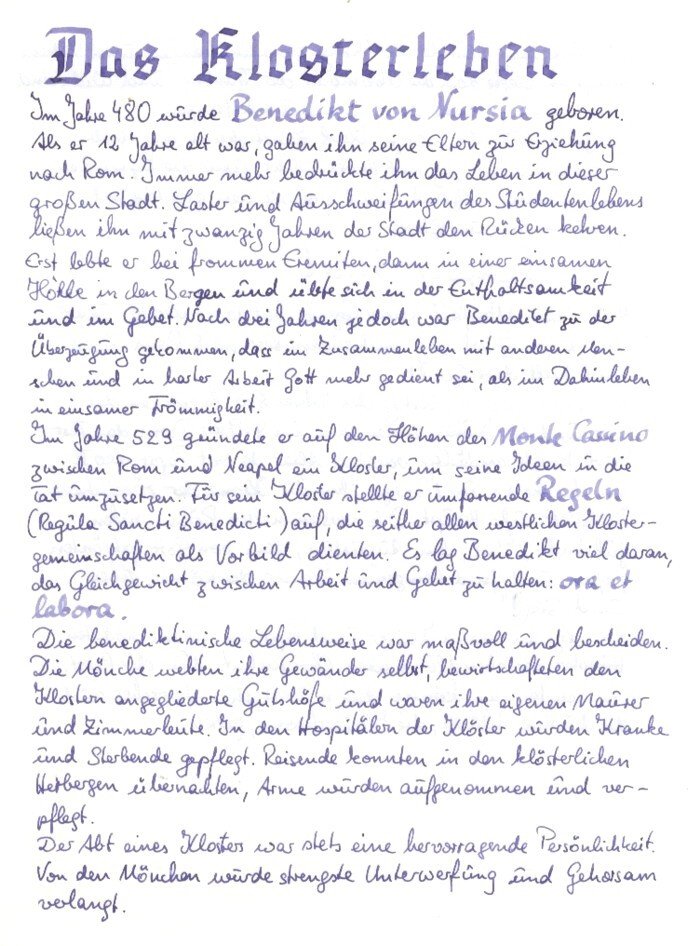 Das Klosterleben
Im Jahre 480 wurde Benedikt von Nursia geboren.
Als er 12 Jahre alt war, gaben ihn seine Eltern zur Erziehung
nach Rom. Immer mehr bedrückte ihn das Leben in dieser
großen Stadt. Laster und Ausschweifungen des Studentenlebens
ließen ihn mit zwanzig Jahren der Stadt den Rücken kehren.
Erst lebte er bei frommen Eremiten, dann in einer einsamen
Höhle in den Bergen und übte sich in der Enthaltsamkeit
und im Gebet. Nach drei Jahren jedoch war Benedikt zu der
Überzeugung gekommen, dass im Zusammenleben mit anderen Men-
schen und in harter Arbeit Gott mehr gedient sei, als im Dahinleben
in einsamer Frömmigkeit.
Im Jahre 529 gründete er auf den Höhen des Monte Cassino
zwischen Rom und Neapel ein Kloster, um seine Ideen in die
Tat umzusetzen. Für sein Kloster stellte er umfassende Regeln
(Regula Sancti Benedicti) auf, die seither allen westlichen Kloster-
gemeinschaften als Vorbild dienten. Es lag Benedikt viel daran,
das Gleichgewicht zwischen Arbeit und Gebet zu halten: ora et
labora.
Die benediktinische Lebensweise war maßvoll und bescheiden.
Die Mönche webten ihre Gewänder selbst, bewirtschafteten den
Klostern angegliederte Gutshöfe und waren ihre eigenen Maurer
und Zimmerleute. In den Hospitälern der Klöster wurden Kranke
und Sterbende gepflegt. Reisende konnten in den klösterlichen
Herbergen übernachten, Arme wurden aufgenommen und ver-
pflegt.
Der Abt eines Klosters war stets eine hervorragende Persönlichkeit.
Von den Mönchen wurde strengste Unterwerfung und Gehorsam
verlangt.